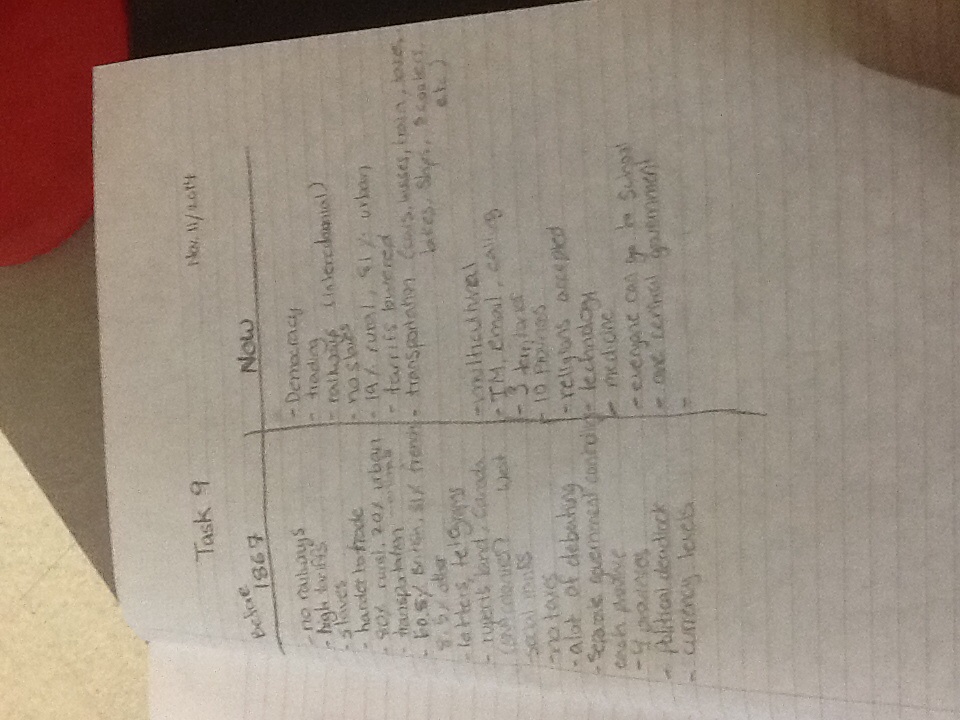 Nov. 11/2014
Task 9
Before
1867
- no railways
- high tariffs
- slaves
- harder to trade
- 80% rural, 20% urban
- transportation
- 60.5% British, 31% french
8.5% other
- letters, telegraphs
- ruperts land, Canada
west
- no taxes
- alot of debating
- Separate government controlling
each province
- 4 provinces
- Political deadlock
- currency levels
Now
- Democracy
- trading
- railways (intercolonial)
- no slaves
- 19% rural, 81% urban
- tarrifs lowered
- transportation (cars, busses, train, bikes,
ships, scooters
etc)
- multicultural
- IM, email, calling
- 3 territories
- 10 Provinces
- religions accepted
- technology
- medicine
- everyone can go to School
- one central government
-